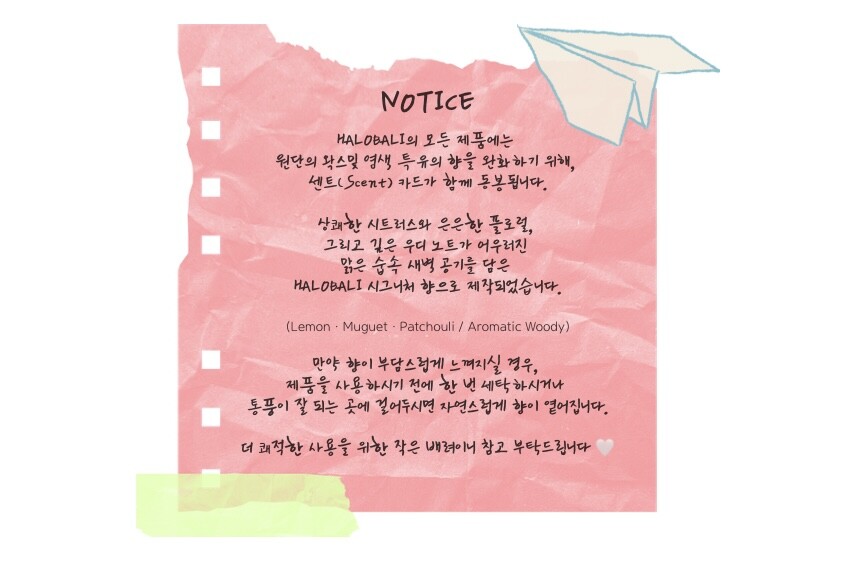 NOTICE
HALOBALI의 모든 제품에는
원단의 왁스및 염색 특유의 향을 완화하기 위해,
센트(Scent) 카드가 함께 동봉됩니다.
상쾌한 시트러스와 은은한 플로럴,
그리고 깊은 우디 노트가 어우러진
맑은 숲속 새벽 공기를 담은
HALOBALI 시그니처 향으로 제작되었습니다.
(Lemon · Muguet · Patchouli / Aromatic Woody)
만약 향이 부담스럽게 느껴지실 경우,
제품을 사용하시기 전에 한 번 세탁하시거나
통풍이 잘 되는 곳에 걸어두시면 자연스럽게 향이 옅어집니다.
더 쾌적한 사용을 위한 작은 배려이니 참고 부탁드립니다 🤍